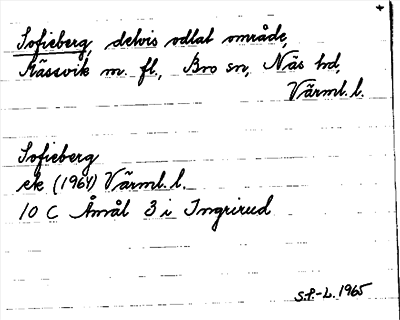 Sofieberg, delvis odlat område,
Kässvik m. fl., Bro sn, Näs hd,
Värml. l.
Sofieberg
ek (1964) Värml. l.
10 C Åmål 3 i Ingrirud
S.P.-L. 1965